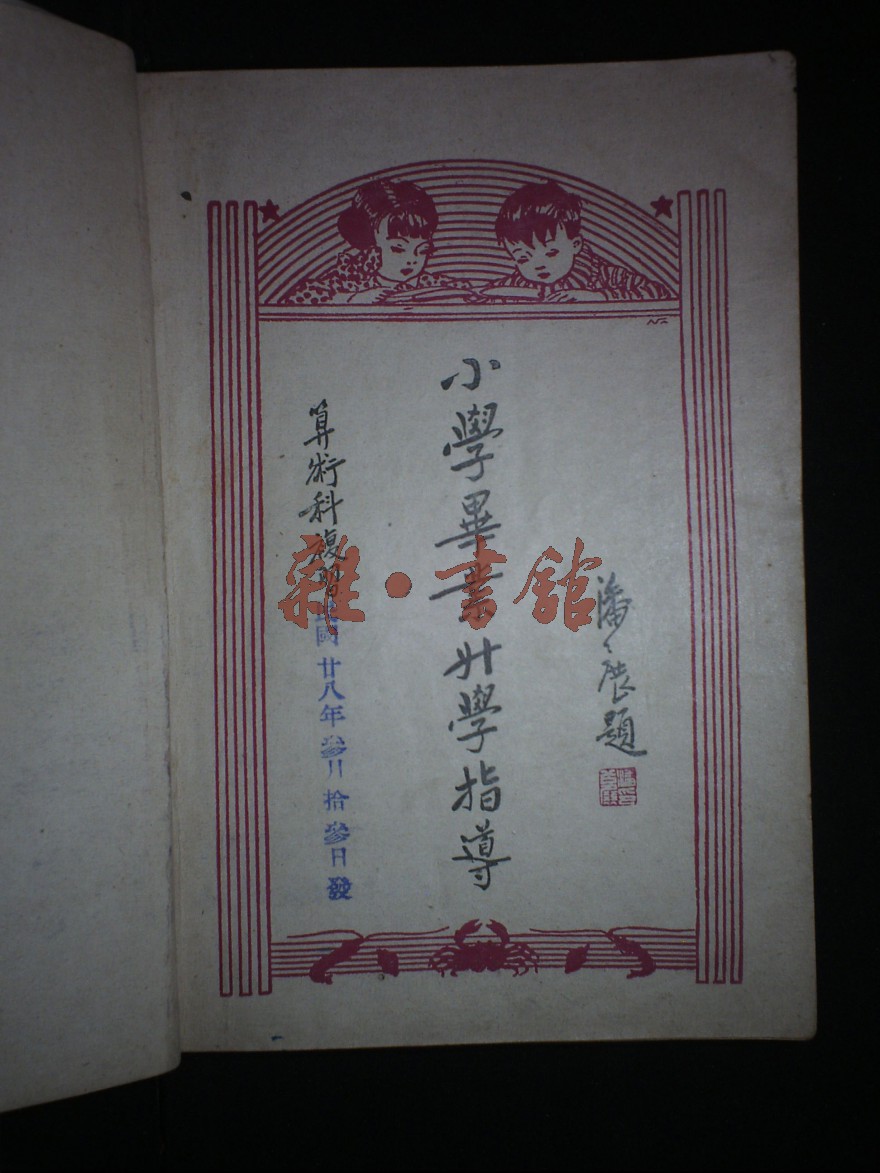 潘公展題
小學畢業升學指導
算術科複習
民國廿八年參月拾參日發
雜·書館